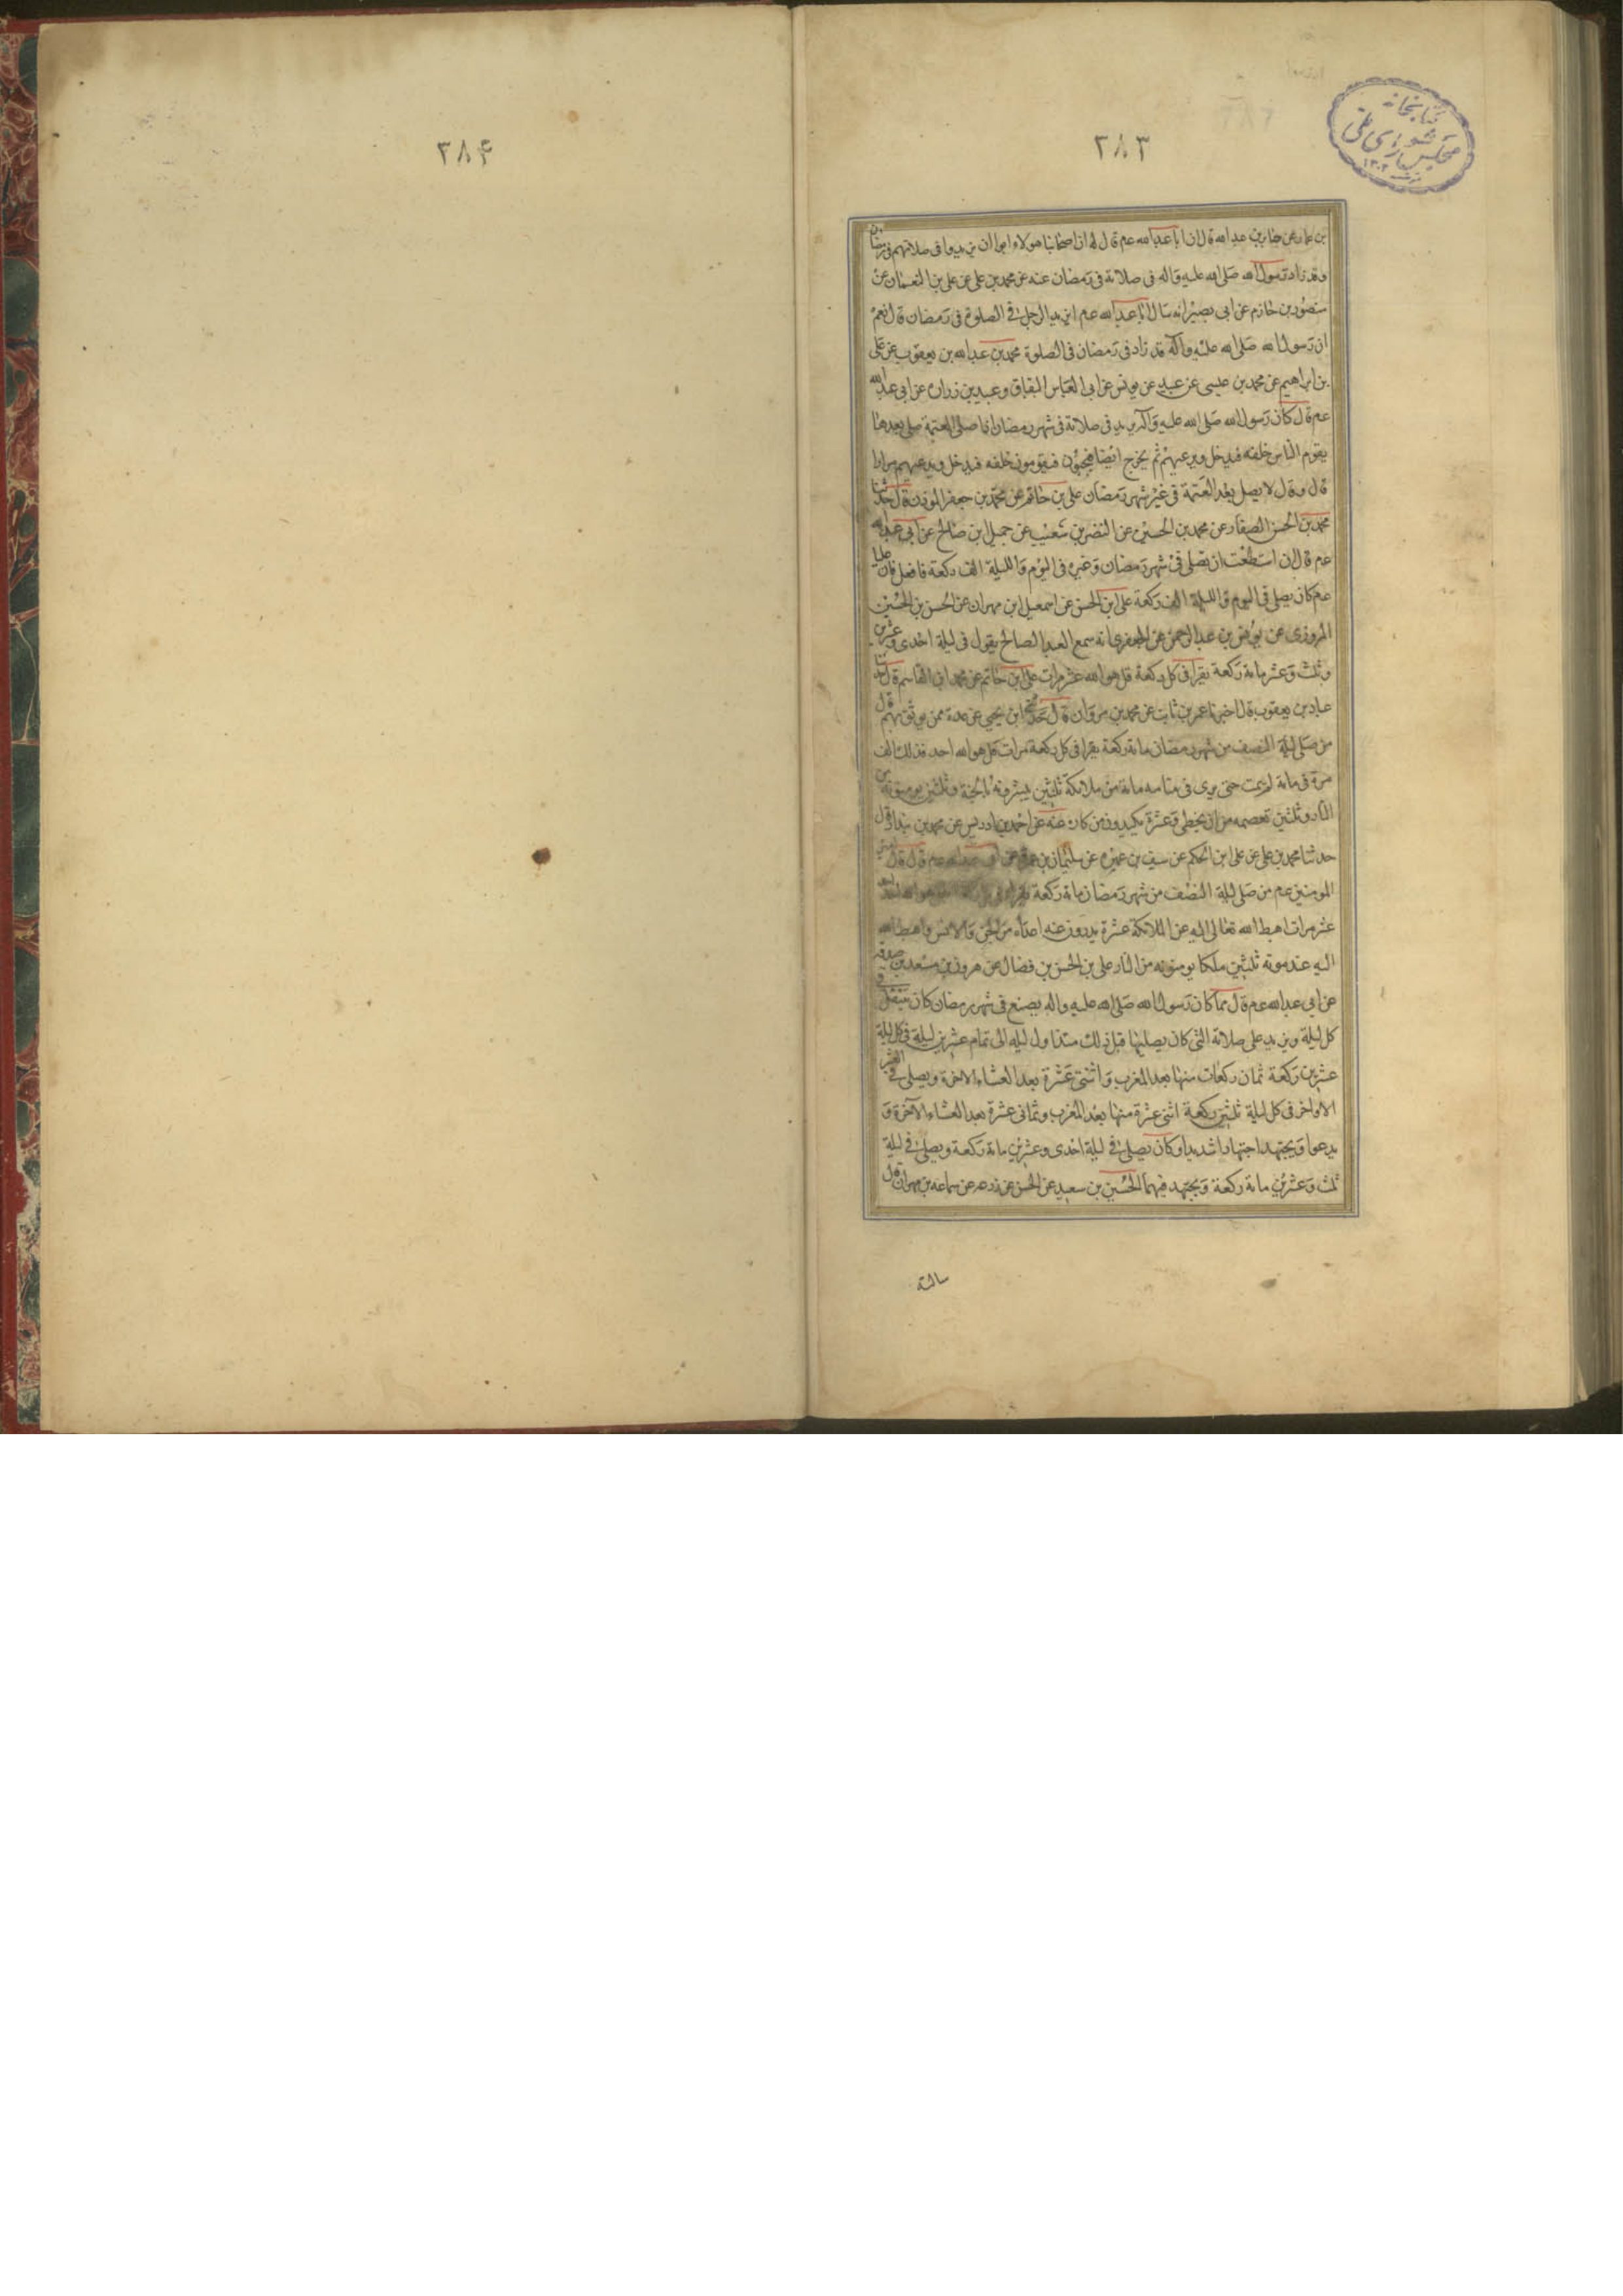 كتابخانه
مجلس شورای ملی
۱۳۰۲
۲۸۳
بن عمار عن جابر بن عبد الله قال ان ابا عبد الله عم قال له ان اصحابنا هولاء ابوا ان يزيدوا فى صلاتهم فى رمضان
وقد زاد رسول الله صلى الله عليه واله فى صلاته فى رمضان عنه عن محمد بن على عن على بن النعمان عن
منصور بن حازم عن ابى بصير انه سال ابا عبد الله عم ايزيد الرجل فى الصلوة فى رمضان قال نعم
ان رسول الله صلى الله عليه وآله قد زاد فى رمضان فى الصلوة محمد بن عبد الله بن يعقوب عن على
بن ابراهيم عن محمد بن عيسى عن عبيد عن يونس عن ابى العباس البقباق وعبيد بن زراره عن ابى عبد الله
عم قال كان رسول الله صلى الله عليه وآله يزيد فى صلاته فى شهر رمضان اذا صلى العتمة صلى بعدها
يقوم الناس خلفه فيدخل ويدعهم ثم يخرج ايضا فيجيؤن فيقومون خلفه فيدخل ويدعهم مرارا
قال وقال لا يصل بعد العتمة فى غير شهر رمضان على بن حاتم عن محمد بن جعفر المؤذن قال حدثنا
محمد بن الحسن الصفار عن محمد بن الحسين عن النضر بن شعيب عن جميل ابن صالح عن ابى عبد الله
عم قال ان استطعت ان تصلى فى شهر رمضان وغيره فى اليوم والليلة الف ركعة فافعل فان عليا
عم كان يصلى فى اليوم والليلة الف ركعة على ابن الحسن عن اسمعيل ابن مهران عن الحسن بن الحسين
المروزى عن يونس بن عبد الرحمن عن الجعفرى انه سمع العبد الصالح يقول فى ليلة احدى وعشرين
وثلث وعشر مائة ركعة يقرا فى كل ركعة قل هو الله عشر مرات على ابن حاتم عن محمد ابن القاسم قال حدثنا
عباد بن يعقوب قال اخبرنا عمر بن ثابت عن محمد بن مروان قال ابن يحيى عن عدة ممن يوثق بهم قال
من صلى ليلة النصف من شهر رمضان مائة ركعة يقرا فى كل ركعة مرات قل هو الله احد فذلك الف
مرة فى مائة لم يمت حتى يرى فى منامه مائة من ملائكة ثلثين يبشرونه بالجنة وثلثين يومنونه من
النار وثلثين تعصمه من ان يخطى وعشرة يكيدون من كاده عنه عن احمد بن ادريس عن محمد بن قال
حدثنا محمد بن على عن على ابن الحكم عن سيف بن عميره عن سليمان بن عمرو عن ابى عبد الله عم قال قال امير
المومنين عم من صلى ليلة النصف من شهر رمضان مائة ركعة يقرا فى
عشر مرات اهبط الله تعالى اليه عن الملائكة عشرة يدرون عنه اعداه من الجن والانس واهبط الله
اليه عند موته ثلثين ملكا يومنونه من النار على بن الحسن بن فضال عن هرون بن مسعد بن صدقه
عن ابى عبد الله عم قال مما كان رسول الله صلى الله عليه واله يصنع فى شهر رمضان كان يتنفل فى
كل ليلة ويزيد على صلاته التى كان يصليها قبل ذلك منذ اول ليله الى تمام عشرين ليلة فى كل ليلة
عشرين ركعة ثمان ركعات منها بعد المغرب واثنتى عشرة بعد العشاء الاخرة ويصلى فى العشر
الاواخر فى كل ليلة ثلثين ركعة اثنى عشرة منها بعد المغرب وثمانى عشرة بعد العشاء الآخرة و
يدعوا ويجتهد اجتهادا شديدا وكان يصلى فى ليلة احدى وعشرين مائة ركعة ويصلى فى ليلة
ثلث وعشرين مائة ركعة ويجتهد فيهما الحسين بن سعيد عن الحسن عن زرعه عن سماعه بن مهران قال
سالته
۲۸۴